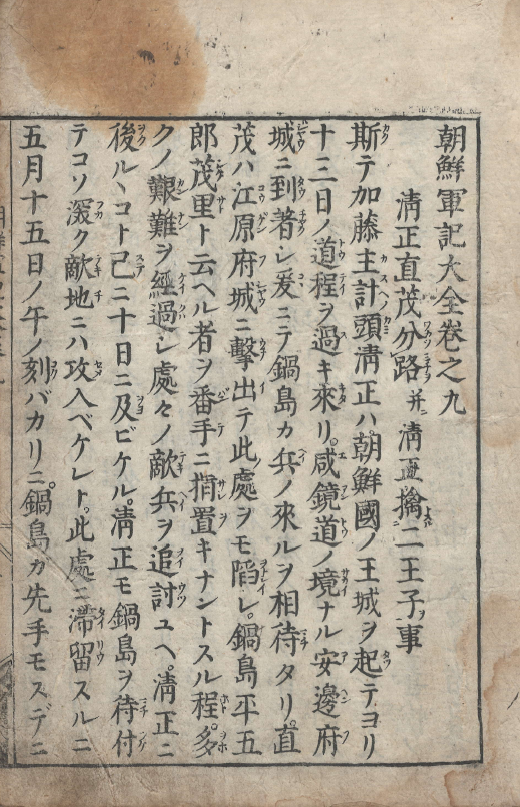 朝鮮軍記大全卷之九
清正直茂分路 并ニ 清正擒二王子事
斯テ加藤主計頭清正ハ朝鮮國ノ王城ヲ起テヨリ
十三日ノ道程ヲ過キ來リ。咸鏡道ノ境ナル安邊府
城ニ到著シ爰ニテ鍋島カ兵ノ來ルヲ相待タリ。直
茂ハ江原府城ニ擊出テ此處ヲモ陷レ。鍋島平五
郎茂里ト云ヘル者ヲ番手ニ措置キナントスル程。多
クノ艱難ヲ經過シ處々ノ敵兵ヲ追討ユヘ。清正ニ
後ルヽコト已ニ十日ニ及ビケル。清正モ鍋島ヲ待付
テコソ深ク敵地ニハ攻入ベケレト。此處ニ滯留スルニ
五月十五日ノ午ノ刻バカリニ。鍋島カ先手モスデニ